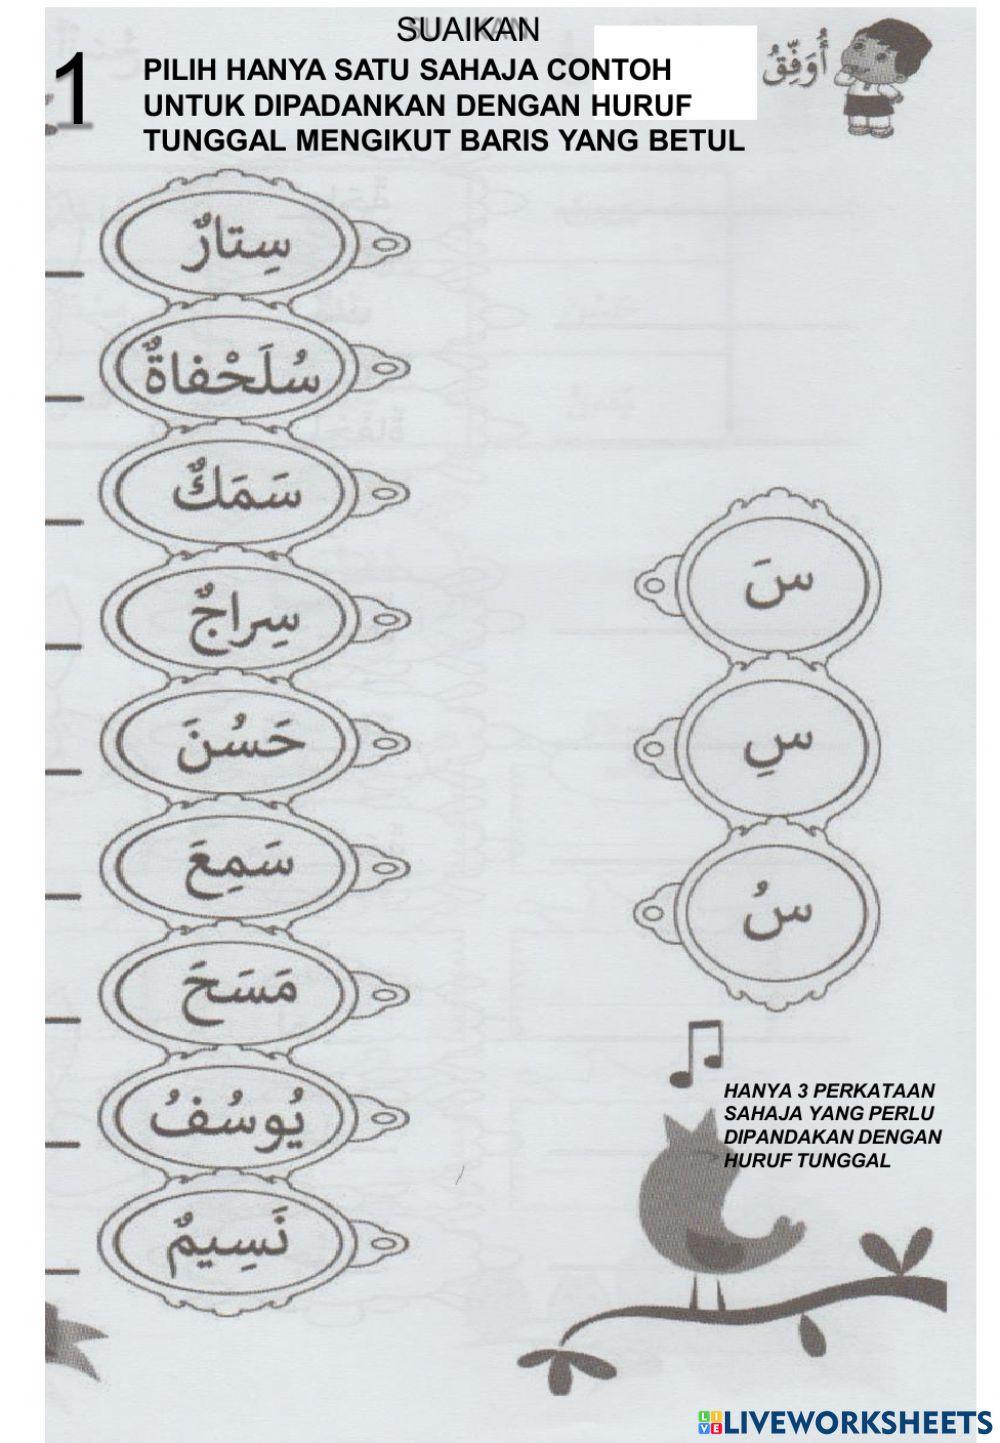 SUAIKAN
1
PILIH HANYA SATU SAHAJA CONTOH
UNTUK DIPADANKAN DENGAN HURUF
TUNGGAL MENGIKUT BARIS YANG BETUL
أُوَفِّقُ
سِتارٌ
سُلَحْفاةٌ
سَمَكٌ
سِراجٌ
حَسُنَ
سَمِعَ
مَسَحَ
يُوسُفُ
نَسِيمٌ
سَ
سِ
سُ
HANYA 3 PERKATAAN
SAHAJA YANG PERLU
DIPANDAKAN DENGAN
HURUF TUNGGAL
LIVEWORKSHEETS